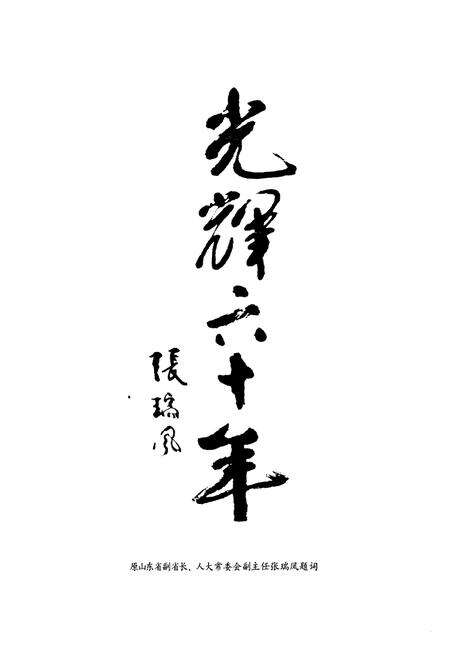 光辉六十年
張瑞凤
原山东省副省长、人大常委会副主任张瑞凤题词